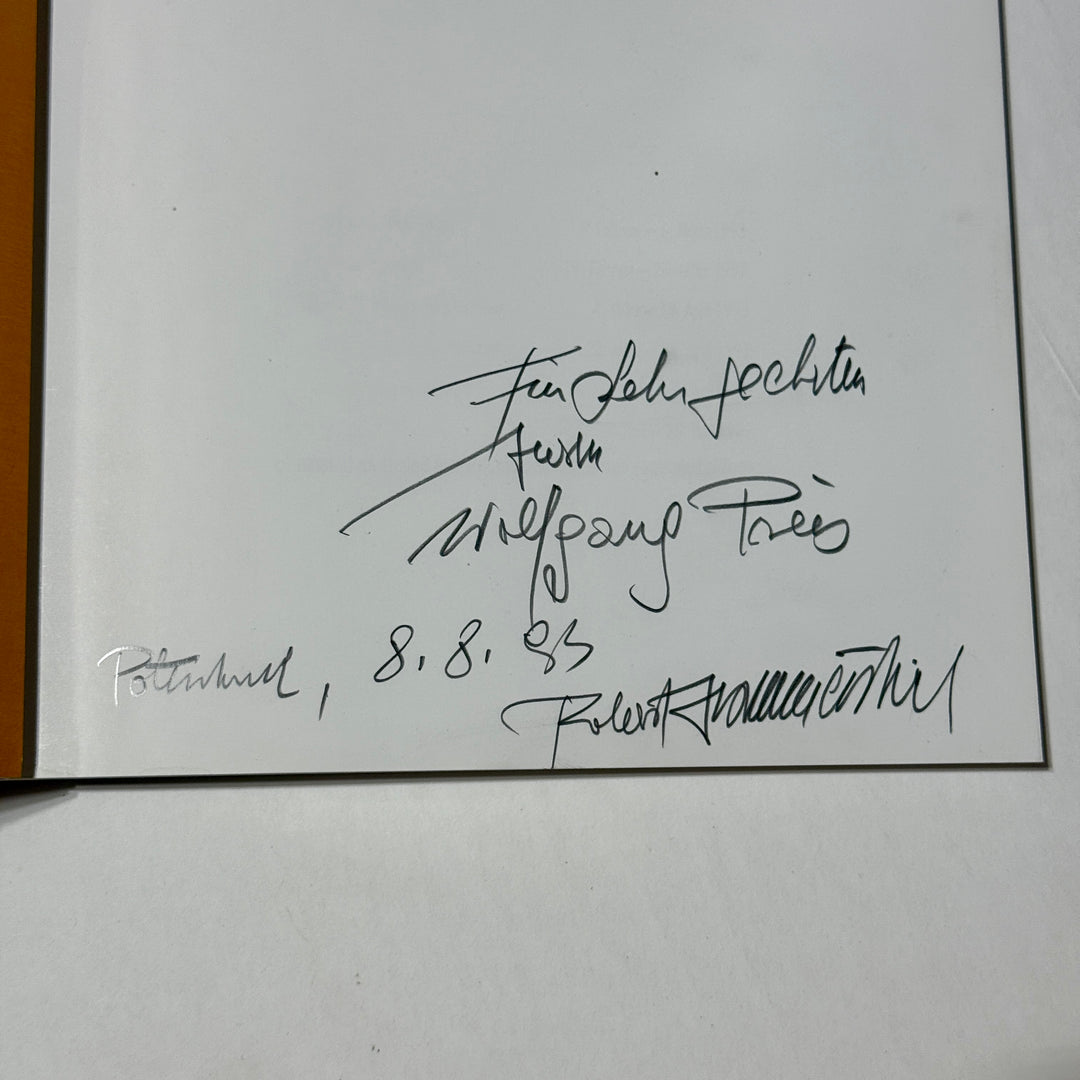 Für Sehr geehrten
Herrn
Wolfgang Preis
Pottenbrunn, 8.8.83
Robert Hammerstiel